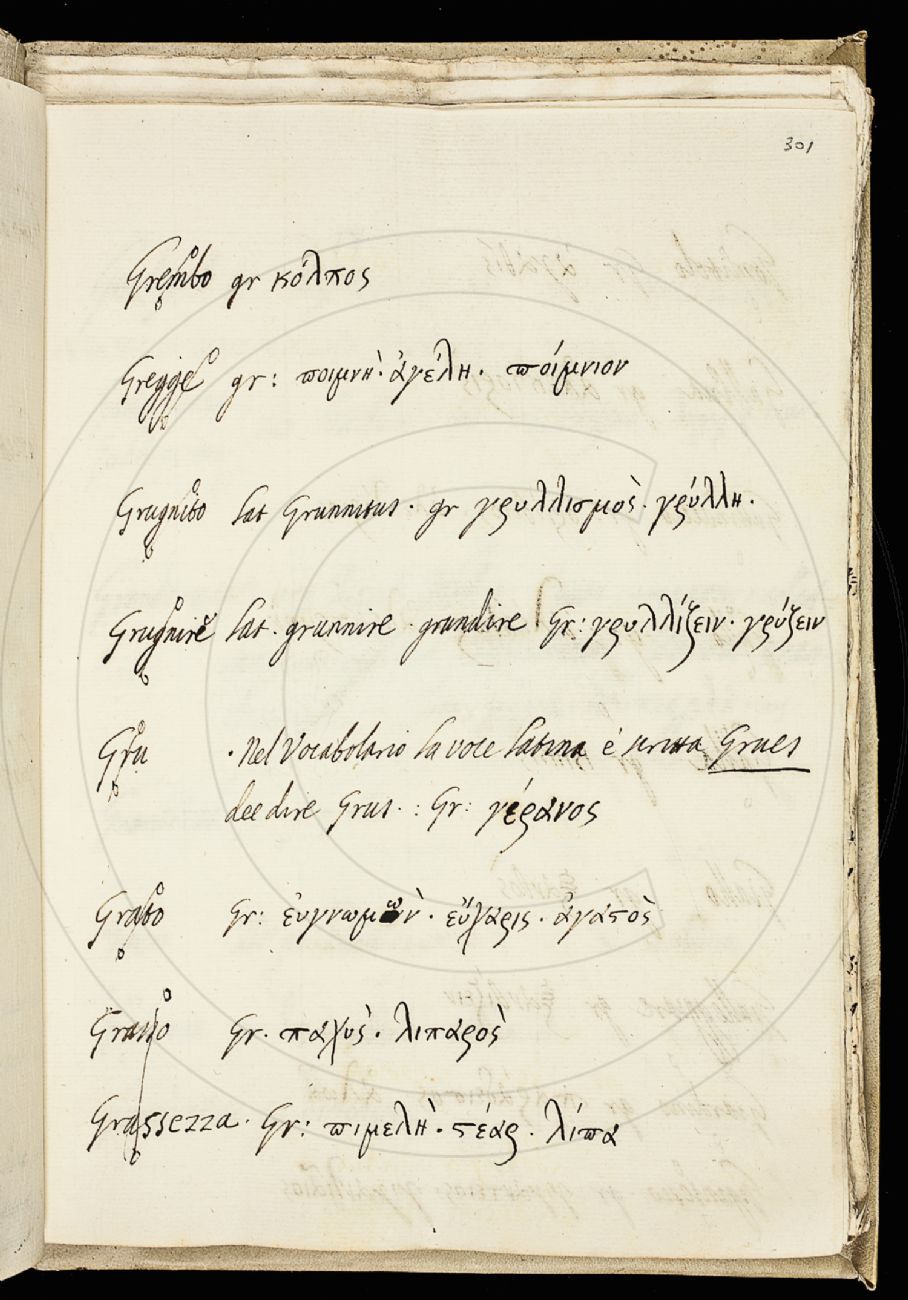 301
Grembo gr κόλπος
Gregge gr: ποιμνὴ· ἀγέλη· ποίμνιον
Grugnito lat Grunnitus· gr γρυλλισμὸς· γρύλλη·
Grugnire lat· grunnire· grundire Gr: γρυλλίζειν· γρύζειν
Gru · Nel Vocabolario la voce latina è scritta Grues
dee dire Grus· : Gr: γέρανος
Grato Gr: ἐυγνωμὼν· εὔχαρις· ἀγατὸς
Grasso Gr· παχὺς· λιπαρὸς
Grassezza· Gr: πιμελὴ· στέαρ· λίπα